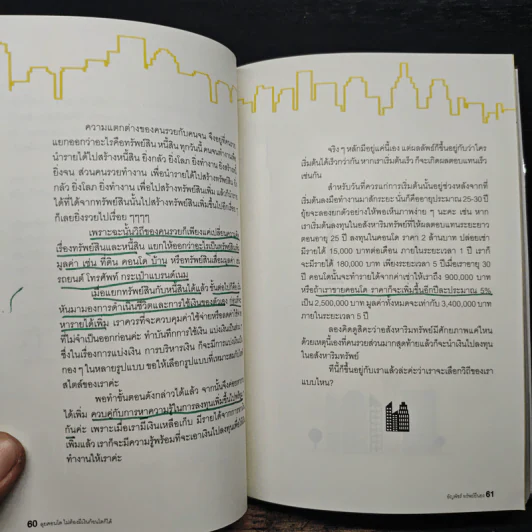 ความแตกต่างของคนรวยกับคนจน จึงอยู่ที่
แยกออกว่าอะไรคือทรัพย์สิน หนี้สิน ทุกวันนี้ คนจนทำงานเพื่อ
นำรายได้ไปสร้างหนี้สิน ยิ่งกลัว ยิ่งโลภ ยิ่งทำงาน ยิ่งสร้างหนี้
ยิ่งจน ส่วนคนรวยทำงาน เพื่อนำรายได้ไปสร้างทรัพย์สิน
กลัว ยิ่งทำงาน เพื่อไปสร้างทรัพย์สินเพิ่ม แล้วก็นำ
ได้ที่ได้จากทรัพย์สินนั้นไปสร้างทรัพย์สินเพิ่มขึ้นไปอีก
ก็เลยยิ่งรวยไปเรื่อย ๆๆๆๆ
เพราะฉะนั้นวิธีของคนรวยก็เพียงแค่เปลี่ยน
เรื่องทรัพย์สินและหนี้สิน แยกให้ออกว่าอะไรเป็นทรัพย์สิน
มูลค่า เช่น ที่ดิน คอนโด บ้าน หรือทรัพย์สินเสื่อมมูลค่า
รถยนต์ โทรศัพท์ กระเป๋าแบรนด์เนม
เมื่อแยกทรัพย์สินกับหนี้สินได้แล้ว ขั้นต่อไปก็
หันมามองการดำเนินชีวิตและการใช้เงินของตัวเอง
หารายได้เพิ่ม เราควรที่จะควบคุมค่าใช้จ่ายหรือลดค่าใช้จ่าย
ที่ไม่จำเป็นออกก่อนค่ะ ทำบันทึกการใช้เงิน แบ่งเงินเป็น
ซึ่งในเรื่องการแบ่งเงิน การบริหารเงิน ก็จะมีการแบ่งเงิน
กอง ๆ ในหลายรูปแบบ ขอให้เลือกรูปแบบที่เหมาะสมกับ
สไตล์ของเราค่ะ
พอทำขั้นตอนดังกล่าวได้แล้ว จากนั้นจึงค่อย
ได้เพิ่ม ควบคู่กับการหาความรู้ในการลงทุนเพิ่มขึ้นไป
กันค่ะ เพราะเมื่อเรามีเงินเหลือเก็บ มีรายได้จากการ
เพิ่มแล้ว เราก็จะมีความรู้พร้อมที่จะเอาเงินไปลงทุนเพื่อให้เงิน
ทำงานให้เราค่ะ
60 ลุยคอนโด ไม่ต้องมีเงินก้อนโตก็ได้
จริง ๆ หลักมีอยู่แค่นี้เอง แต่ผลลัพธ์ก็ขึ้นอยู่กับว่าใคร
เริ่มต้นได้เร็วกว่ากัน หากเราเริ่มต้นเร็ว ก็จะเกิดผลตอบแทนเร็ว
เช่นกัน
สำหรับวันที่ควรแก่การเริ่มต้นนั้นอยู่ช่วงหลังจากที่
เริ่มต้นลงมือทำงานมาสักระยะ นั่นก็คืออายุประมาณ 25-30 ปี
ยุ้ยจะลองยกตัวอย่างให้พอเห็นภาพง่าย ๆ นะคะ เช่น หาก
เราเริ่มต้นลงทุนในอสังหาริมทรัพย์ที่ให้ผลตอบแทนระยะยาว
ตอนอายุ 25 ปี ลงทุนในคอนโด ราคา 2 ล้านบาท ปล่อยเช่า
มีรายได้ 15,000 บาทต่อเดือน ภายในระยะเวลา 1 ปี เราก็
จะมีรายได้ 180,000 บาท เพียงระยะเวลา 5 ปีเมื่ออายุ 30
ปี คอนโดนั้นจะทำรายได้จากค่าเช่าให้เราถึง 900,000 บาท
หรือถ้าเราขายคอนโด ราคาก็จะเพิ่มขึ้นอีกปีละประมาณ 5%
เป็น 2,500,000 บาท มูลค่าทั้งหมดจะเท่ากับ 3,400,000 บาท
ภายในระยะเวลา 5 ปี
ลองคิดดูสิคะว่าอสังหาริมทรัพย์มีศักยภาพแค่ไหน
ด้วยเหตุนี้เองที่คนรวยส่วนมากสุดท้ายแล้วก็จะนำเงินไปลงทุน
ในอสังหาริมทรัพย์
ทีนี้ก็ขึ้นอยู่กับเราแล้วล่ะค่ะว่าจะเลือกวิถีของเรา
แบบไหน?
61